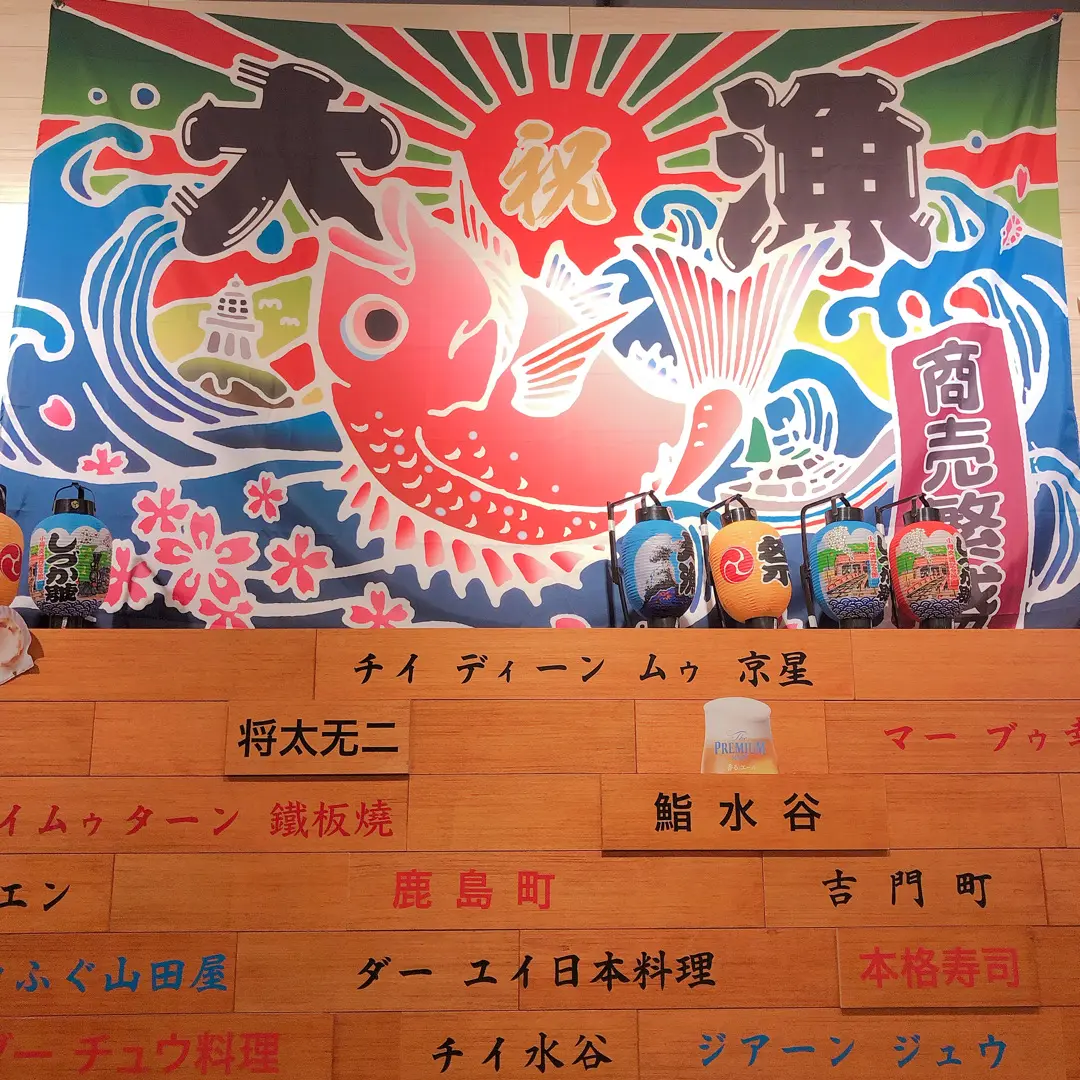 大 祝 漁
商売繁盛
しづか
チイ ディーン ムゥ 京星
将太无二
The PREMIUM
マー ブゥ
イムゥターン 鐵板燒
鮨 水 谷
エン
鹿 島 町
吉 門 町
ふぐ山田屋
ダー エイ日本料理
本格寿司
ダー チュウ料理
チイ水谷
ジアーン ジェウ